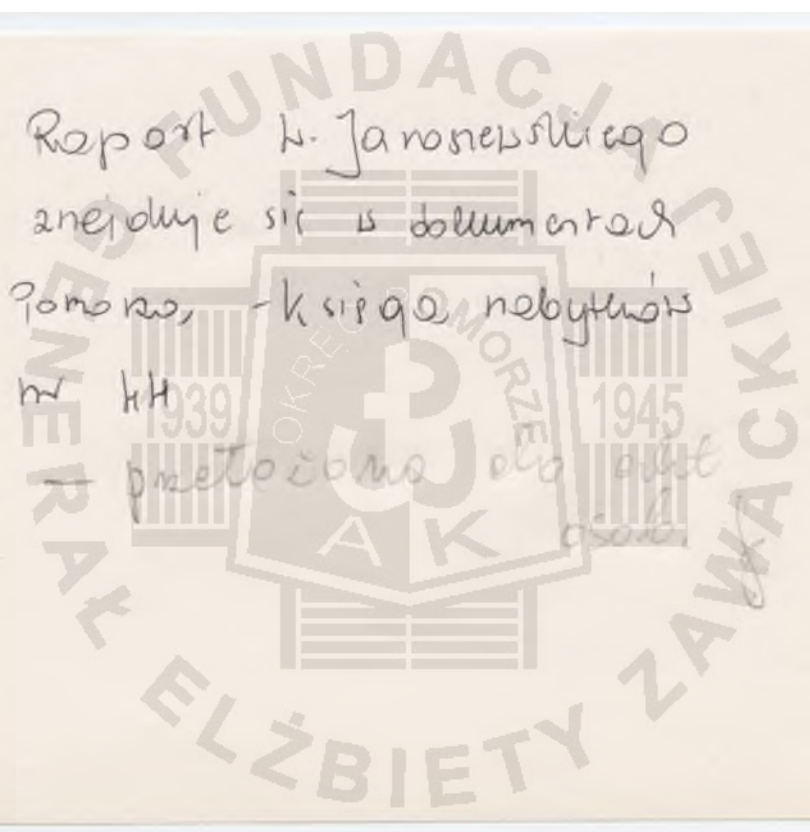 Raport W. Jaroszewskiego
znajduje się w dokumentach
Pomorza, - księga nabytków
nr 44
- przełożono do
osob.
FUNDACJA GENERAŁ ELŻBIETY ZAWACKIEJ
OKRĘG POMORZE
1939 1945
A K